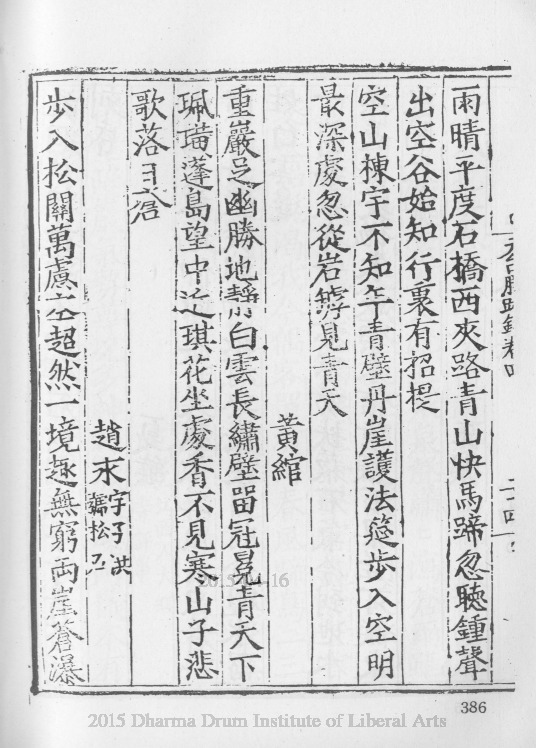 雨晴平度石橋西夾路青山快馬蹄忽聽鍾聲
出空谷始知行裏有招提
空山棟宇不知年青壁丹崖護法筵步入空明
最深處忽從岩竇見青天
黃綰
重巖足幽勝地靜白雲長繡壁留冠冕青天下
珮璫蓬島望中近琪花坐處香不見寒山子悲
歌落日蒼
趙永字子洪
號松
步入松關萬慮空超然一境趣無窮両崖蒼瀑
386
2015 Dharma Drum Institute of Liberal Arts